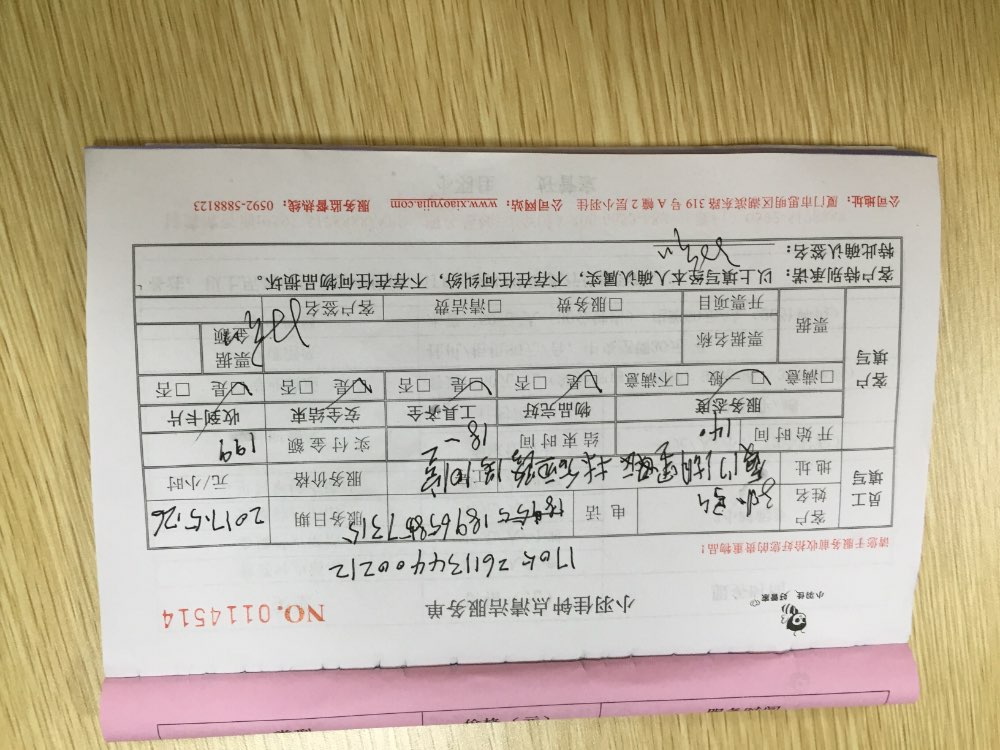 小羽佳，好管家
小羽佳钟点清洁服务单
NO.0114514
请您于服务前收拾好您的贵重物品！
员工填写
客户姓名
电话
18965857315
服务日期
2017.5.26
地址
服务价格
元/小时
开始时间
14
结束时间
18
实付金额
199
客户填写
服务态度
物品完好
工具齐全
安全结束
收到卡片
□满意 □一般 □不满意
□是 □否
□是 □否
□是 □否
□是 □否
票据
票据名称
票据金额
开票项目
□服务费 □清洁费
客户签名
客户特别承诺：以上填写经本人确认属实，不存在任何纠纷，不存在任何物品损坏。
特此确认签名：
公司地址：厦门市思明区湖滨东路 319 号 A 幢 2 层小羽佳 公司网站：www.xiaoyujia.com 服务监督热线：0592-5888123